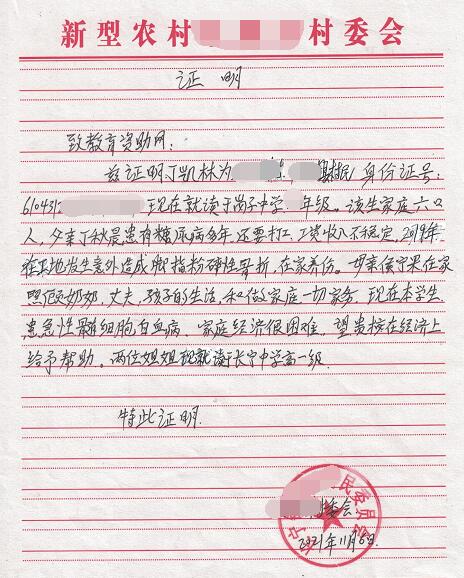 新型农村 村委会
证明
致教育资助网：
兹证明丁凯林为 身份证号：
610431 现在就读于尚子中学 年级。该生家庭六口
人，父亲丁秋晨患有糖尿病多年，还要打工，工资收入不稳定，2019年
在工地发生意外造成脚指粉碎性骨折，在家养伤。母亲侯宁果在家
照顾奶奶，丈夫，孩子的生活，和做家庭一切家务，现在本学生
患急性髓细胞白血病，家庭经济很困难，望贵校在经济上
给予帮助。两位姐姐现就读于长宁中学高一级.
特此证明.
民委员会
委会
2021年11月6日.